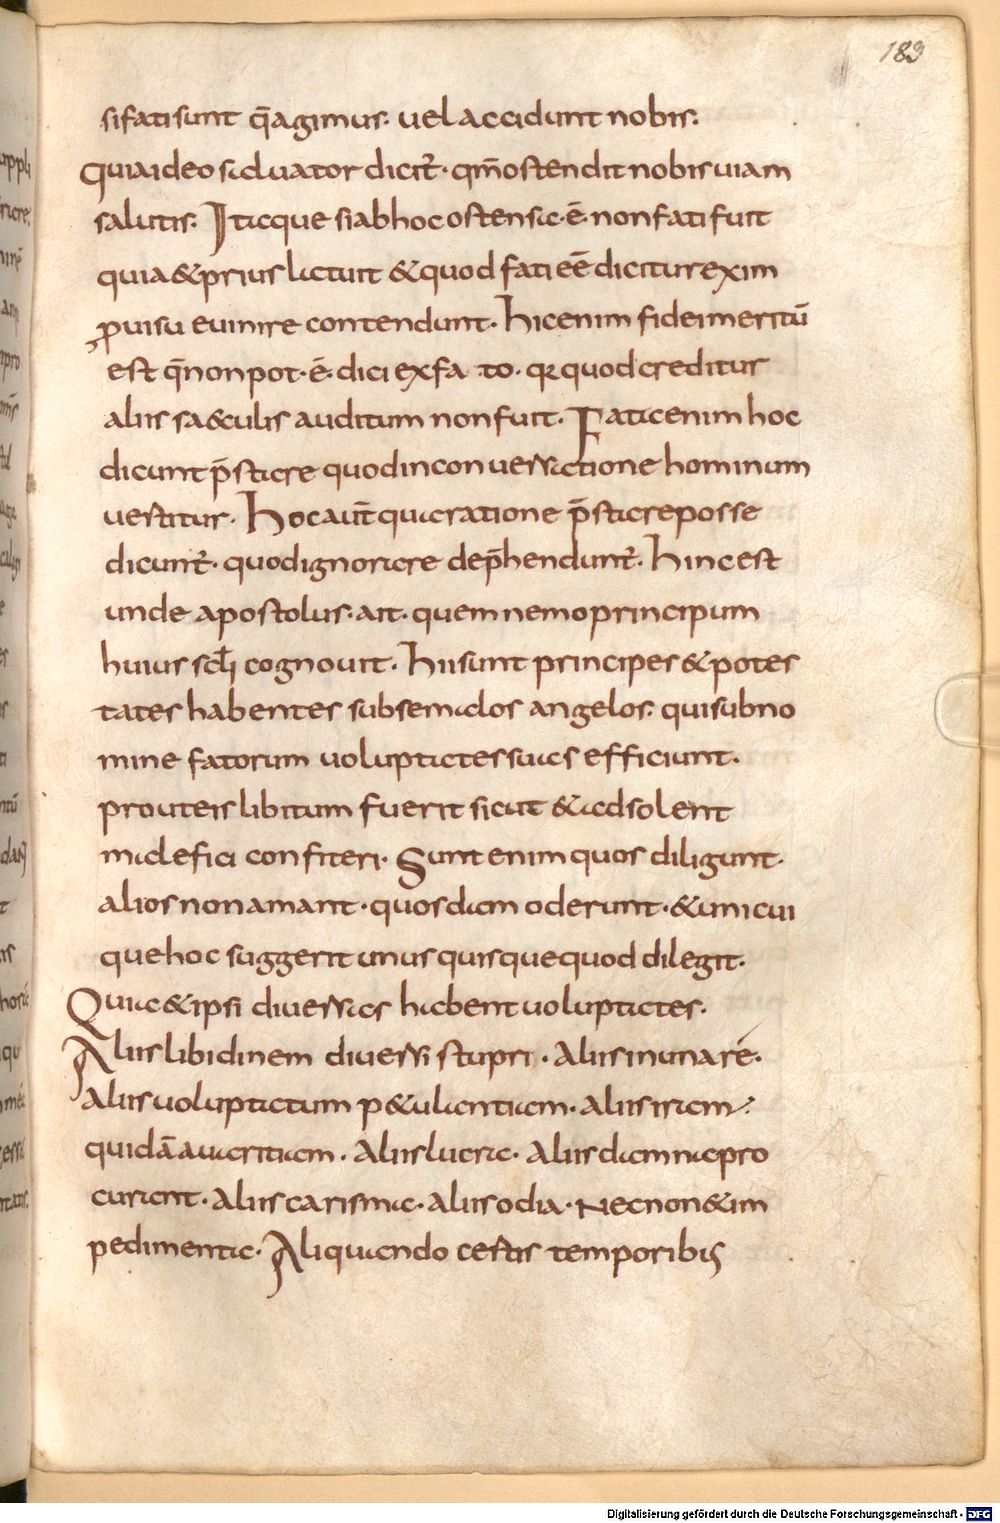 183
si fati sunt q̄ agimus. uel accidunt nobis.
Quia ideo saluator dicit̄. qm̄ ostendit nobis uiam
salutis. Itaque si ab hoc ostensa.ē. non fati fuit
quia & prius latuit & quod fati eē dicitur exim
puisu euinire contendunt. Hic enim fidei meritū
est q̄ non pot.ē. dici ex fato. qr quod creditur
aliis sa&culis auditum non fuit. Fati enim hoc
dicunt p̄stare quod in conuersatione hominum
uestitur. Hoc aut̄ qua ratione p̄stare posse
dicunt̄. quod ignorare dep̄hendunt̄. Hinc est
unde apostolus. ait. quem nemo principum
huius scl̄i cognouit. Hii sunt principes & potes
tates habentes sub se malos angelos. qui sub no
mine fatorum uoluptates suas efficiunt.
prout eis libitum fuerit sicut & ad solent
malefici confiteri. Sunt enim quos diligunt.
alios non amant. quosdam oderunt. & unicui
que hoc suggerit unus quisque quod dilegit.
Quia & ipsi diuersas habent uoluptates.
Aliis libidinem diuersi stupri. Aliis in una rē.
Aliis uoluptatum p&ulantiam. aliis iram.
quidā auaritiam. Aliis lucra. Aliis damna pro
curant. Aliis carisma. aliis odia. Nec non & im
pedimenta. Aliquando certis temporibus
Digitalisierung gefördert durch die Deutsche Forschungsgemeinschaft - DFG